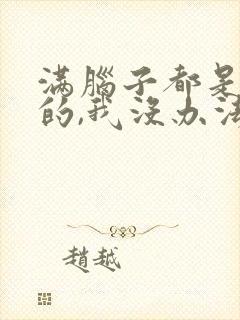 滿腦子都是
的,我沒办法
趙越